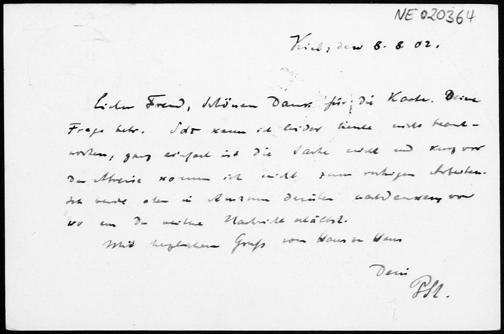 NE 020364
Kiel, den 8. 8. 02.
Lieber Freund, schönen Dank für die Karte. Deine
Frage betr. kann ich leider heute nicht beant-
worten, ganz einfach ist die Sache nicht und kurz vor
der Abreise komme ich nicht zum ruhigen Arbeiten.
Ich werde aber in darüber nachdenken, von
wo aus Du weitere Nachricht erhältst.
Mit herzlichem Gruß von Haus zu Haus
Dein